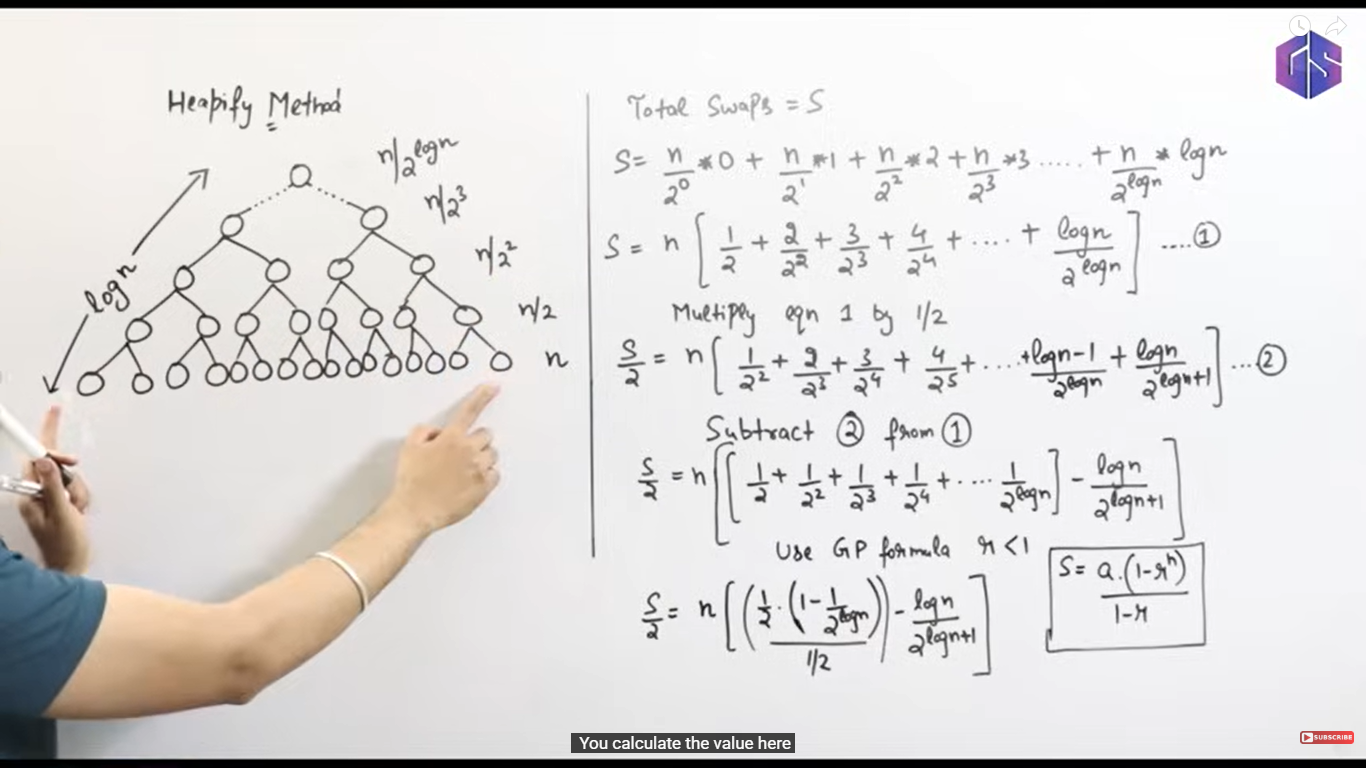 Heapify Method
n/2^logn
n/2^3
n/2^2
n/2
n
logn
Total Swaps = S
S= n/2^0 *0 + n/2^1 *1 + n/2^2 *2 + n/2^3 *3 ..... + n/2^logn * logn
S= n [ 1/2 + 2/2^2 + 3/2^3 + 4/2^4 + .... + logn/2^logn ] ....①
Multiply eqn 1 by 1/2
S/2 = n [ 1/2^2 + 2/2^3 + 3/2^4 + 4/2^5 + .... + logn-1/2^logn + logn/2^logn+1 ] ...②
Subtract ② from ①
S/2 = n [ [ 1/2 + 1/2^2 + 1/2^3 + 1/2^4 + .... 1/2^logn ] - logn/2^logn+1 ]
Use GP formula r<1
S= a.(1-r^n)/1-r
S/2 = n [ ( 1/2 . (1 - 1/2^logn) / 1/2 ) - logn/2^logn+1 ]
You calculate the value here
GS
SUBSCRIBE